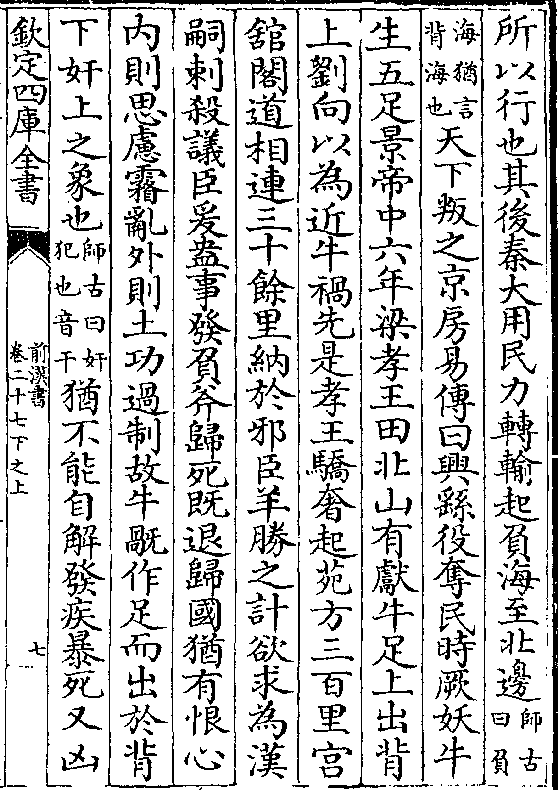 所以行也其後秦大用民力轉輸起負海至北邊師古曰負
海猶言背海也天下叛之京房易傳曰興繇役奪民時厥妖牛
生五足景帝中六年梁孝王田北山有獻牛足上出背
上劉向以為近牛禍先是孝王驕奢起苑方三百里宫
館閣道相連三十餘里納於邪臣羊勝之計欲求為漢
嗣刺殺議臣爰盎事發負斧歸死既退歸國猶有恨心
内則思慮霿亂外則土功過制故牛旤作足而出於背
下奸上之象也師古曰奸犯也音干猶不能自解發疾暴死又凶
欽定四庫全書
前漢書
卷二十七下之上
七